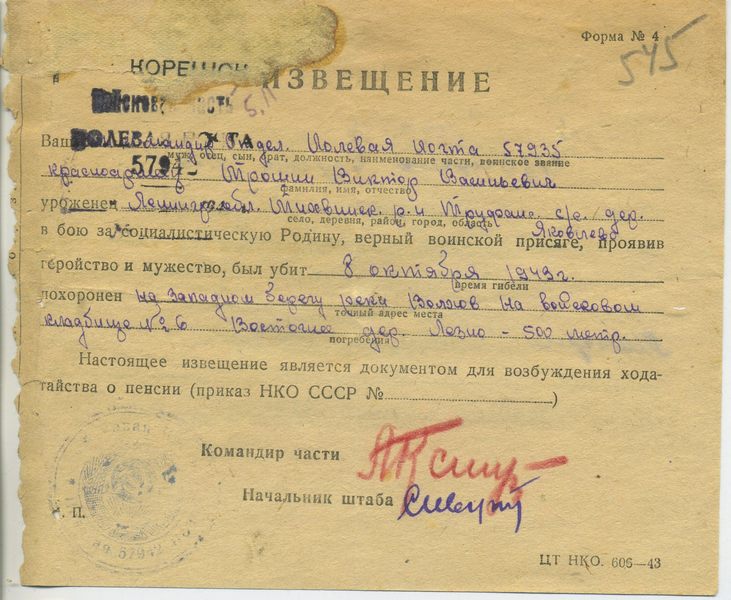 Форма № 4
545
КОРЕШОК
ИЗВЕЩЕНИЕ
ПОЛЕВАЯ ПОЧТА
Ваш отдел. Полевая почта 57935
муж, отец, сын, брат, должность, наименование части, воинское звание
красноармеец Трошин Виктор Васильевич
фамилия, имя, отчество
уроженец Ленингр. обл. Тихвинск. р-н с/с. дер. Яковлево
село, деревня, район, город, область
в бою за социалистическую Родину, верный воинской присяге, проявив
геройство и мужество, был убит 8 октября 1943 г.
время гибели
похоронен на западном берегу реки Волхов на войсковом
точный адрес места
кладбище № 6 Восточнее дер. Лезно - 500 метр.
погребения
Настоящее извещение является документом для возбуждения хода-
тайства о пенсии (приказ НКО СССР № )
Командир части
Начальник штаба
М. П.
ЦТ НКО. 606—43